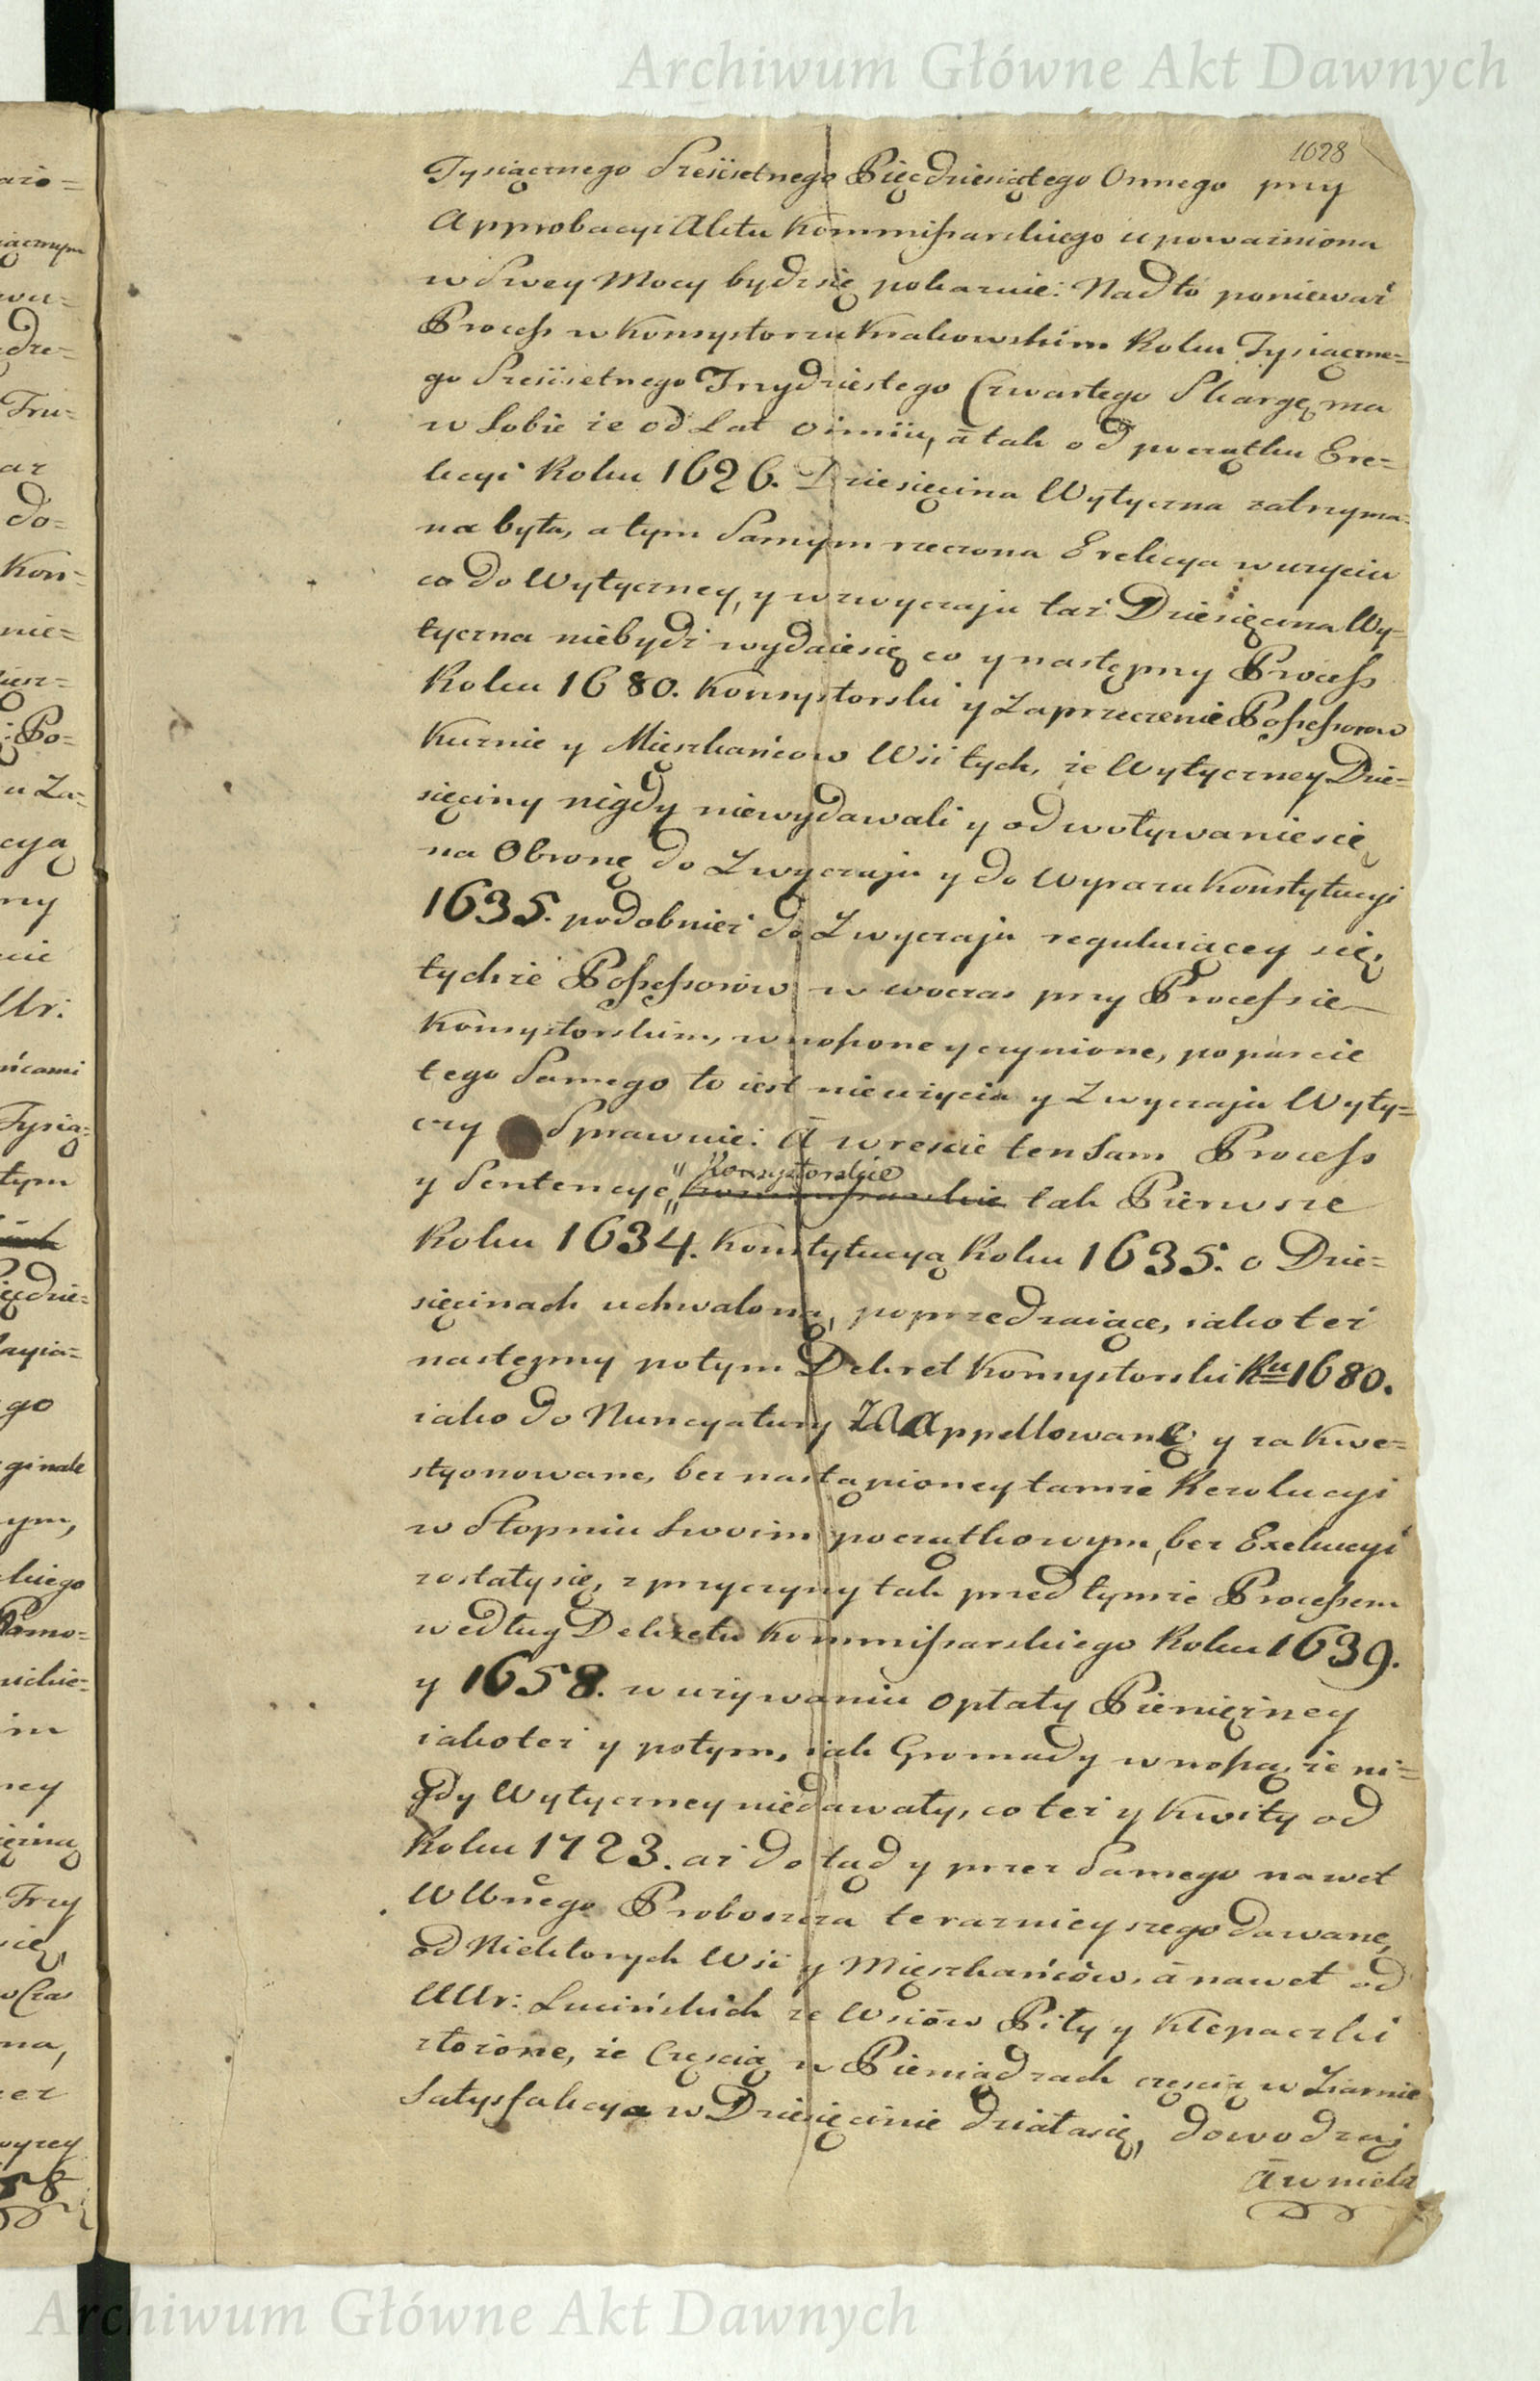 Archiwum Główne Akt Dawnych
1028
Tysiącznego Sześćsetnego Pięcdziesiątego Osmego przy
Approbacyi Aktu Kommissarskiego upoważniona
w Swey Mocy bydź się pokazuie: Nadto ponieważ
Process w Konsystorzu Krakowskim Roku Tysiączne=
go Sześćsetnego Trzydziestego Czwartego Skargę ma
w Sobie że od Lat osmiu, ā tak od początku Ere=
kcyi Roku 1626. Dziesięcina Wytyczna zatrzyma=
na była, a tym Samym rzeczona Erekcya w uzyciu
co do Wytyczney, y w zwyczaju taż Dziesięcina Wy=
tyczna niebydź wydaiesię co y następny Process
Roku 1680. Konsystorski y Zaprzeczenie Possessorow
Kuznie y Mieszkańcow Wsi tych, że Wytyczney Dzie=
sięciny nigdy niewydawali y odwoływanie się
na Obronę do Zwyczaju y do Wyrazu Konstytucyi
1635. podobnież do Zwyczaju reguluiącey się,
tychże Possessorów w woczas przy Processie
Konsystorskim, wnoszone y czynione, poparcie
tego Samego to iest nieużycia y Zwyczaju Wyty=
czy Sprawuie: Ā wreście ten Sam Process
y Sentencye " Konsystorskie tak Pierwsze
Roku 1634. Konstytucyą Roku 1635. o Dzie=
sięcinach uchwaloną, poprzedzaiące, iako też
następny potym Dekret Konsystorski Ru 1680.
iako do Nuncyatury ZaAppellowane y zakwe=
styonowane, bez nastąpioney tamże Rezolucyi
w Stopniu Swoim początkowym, bez Exekucyi
zostały się, z przyczyny tak przed tymże Processem
według Dekretu Kommissarskiego Roku 1639.
y 1658. w używaniu opłaty Pienięzney
iakoteż y potym, iak Gromady wnoszą że ni=
gdy Wytyczney niedawały, co też y Kwity od
Roku 1723. aż dotąd y przez Samego nawet
WUrnego Proboszcza terazniejszego dawane,
od Niektorych Wsi y Mięszkańców, ā nawet od
UUr: Lucińskich ze Wsiów Piły y Klepaczki
złożone, że Częścią w Pieniądzach częścią w Ziarnie
Satysfakcya w Dziesięcinie działasię, dowodzą
ā w niekt
Archiwum Główne Akt Dawnych